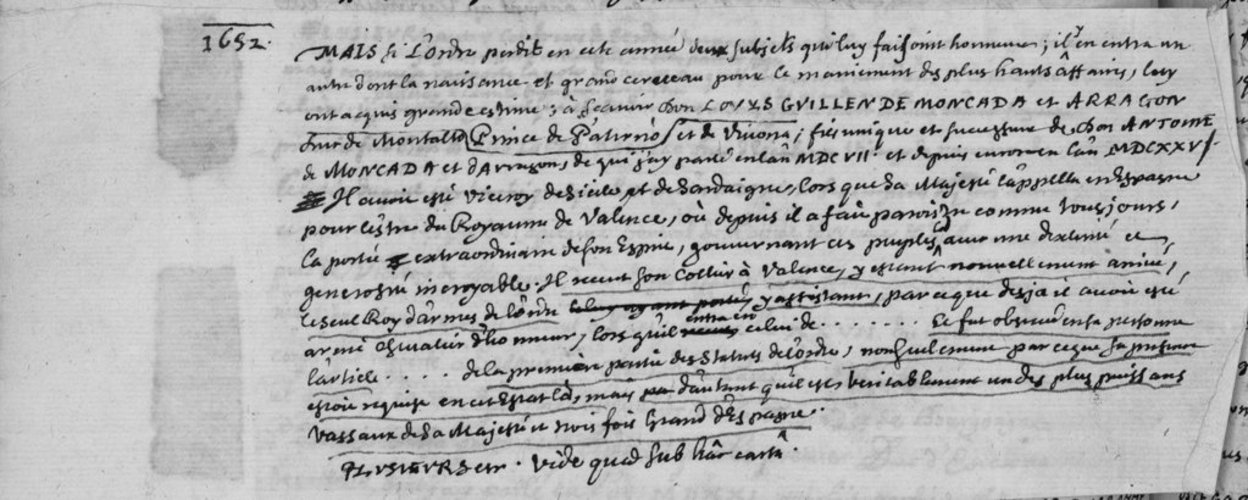 1652.
MAIS si L'ordre perdit en cete année deux subjets qui luy faisoint honneur; il y en entra un
autre dont la naissance et grand cerveau pour le maniement des plus hauts affaires, luy
ont acquis grande estime; à sçavoir Don LOUYS GUILLEN DE MONCADA et ARRAGON
Duc de Montalto, Prince de Paterno, et de; fils unique et successeur de Don ANTOINE
de MONCADA et d'Arragon, de qui j'ay parlé en l'an MDCVII. et depuis encor en l'an MDCXXVI.
Il avoit esté Viceroy de Sicile et de Sardaigne, lors que Sa Majesté l'appella en Espagne
pour l'estre du Royaume de Valence, où depuis il a fait paroistre comme tousjours,
la portée extraordinaire de son Esprit, gouvernant ces peuples avec une dexterité et
generosité incroyable. Il receut son Collier à Valence, y estant nouvellement arrivé,
le seul Roy d'armes de l'ordre y assistant, par ce que desja il avoit esté
armé Chevalier d'honneur, lors qu'il entra en celui de . . . . . . . Ce fut observé en sa personne
l'article . . . . de la premiere partie des Statuts de l'ordre, non seulement par ce que sa presence
estoit requise en cet Estat là, mais d'autant qu'il est veritablement un des plus puissans
vassaux de Sa Majesté et trois fois Grand d'Espagne.
PLUSIEURS etc. Vide quod sub hac carta.